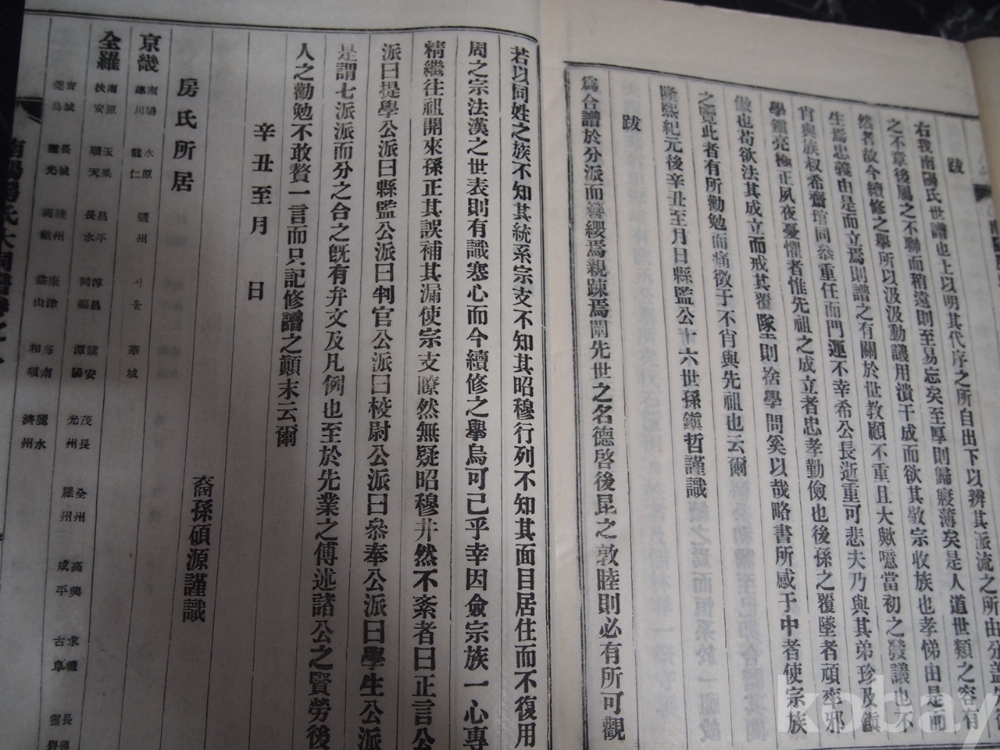 跋
右我南陽氏世譜也上以明其代序之所自出下以辨其派流之所由分蓋
之不章後屬之不聯而稍遠則至易忘矣至厚則歸寢薄矣是人道世類之容有
然者故今續修之舉所以汲汲動議用潰于成而欲其敬宗收族也孝悌由是而
生焉忠義由是而立焉則譜之有關於世教顧不重且大歟噫當初之發議也不
肖與族叔希齋琯同叅重任而門運不幸希公長逝重可悲夫乃與其弟珍及鎭
學鎭亮極正夙夜憂懼者惟先祖之成立者忠孝勤儉也後孫之覆墜者頑率邪
傲也苟欲法其成立而戒其覆隊則捨學問奚以哉略書所感于中者使宗族
之覽此者有所勸勉而痛徵于不肖與先祖也云爾
隆熙紀元後辛丑至月日縣監公十六世孫鎭哲謹識
跋
爲合譜於分派而簪纓焉親踈焉閒先世之名德啓後昆之敦睦則必有所可觀
若以同姓之族不知其統系宗支不知其昭穆行列不知其面目居住而不復用
周之宗法漢之世表則有識寒心而今續修之擧烏可已乎幸因僉宗族一心專
精繼往祖開來孫正其誤補其漏使宗支瞭然無疑昭穆井然不紊者曰正言公
派曰提學公派曰縣監公派曰判官公派曰校尉公派曰叅奉公派曰學生公派
是謂七派派而分之合之旣有弁文及凡例也至於先業之傳述諸公之賢勞後
人之勸勉不敢贅一言而只記修譜之顛末云爾
辛丑至月 日
裔孫碩源謹識
房氏所居
京畿 南陽 水原 驪州 서울 華城
漣川 龍仁
全羅 南原 玉果 昌平 淳昌 茂長 全州 高興 求禮
扶安 順天 長水 同福 潭陽 光州 羅州 咸平 古阜
寶城 長城 綾州 康津 海南 麗水
靈光 高敞 益山 和順 濟州